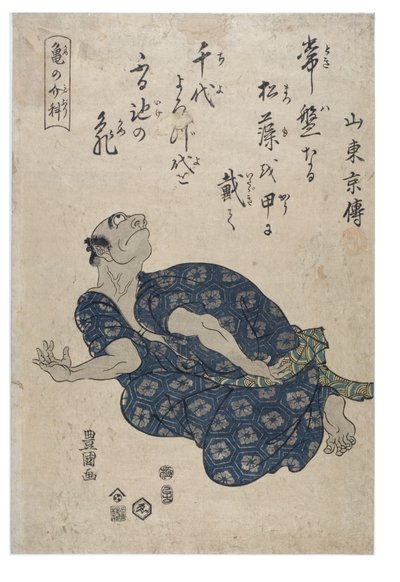 山東京傳
常盤なる
松藻を甲に
戴て
千代
よろづ代と
ふる池の
亀
亀の介科
豊國画